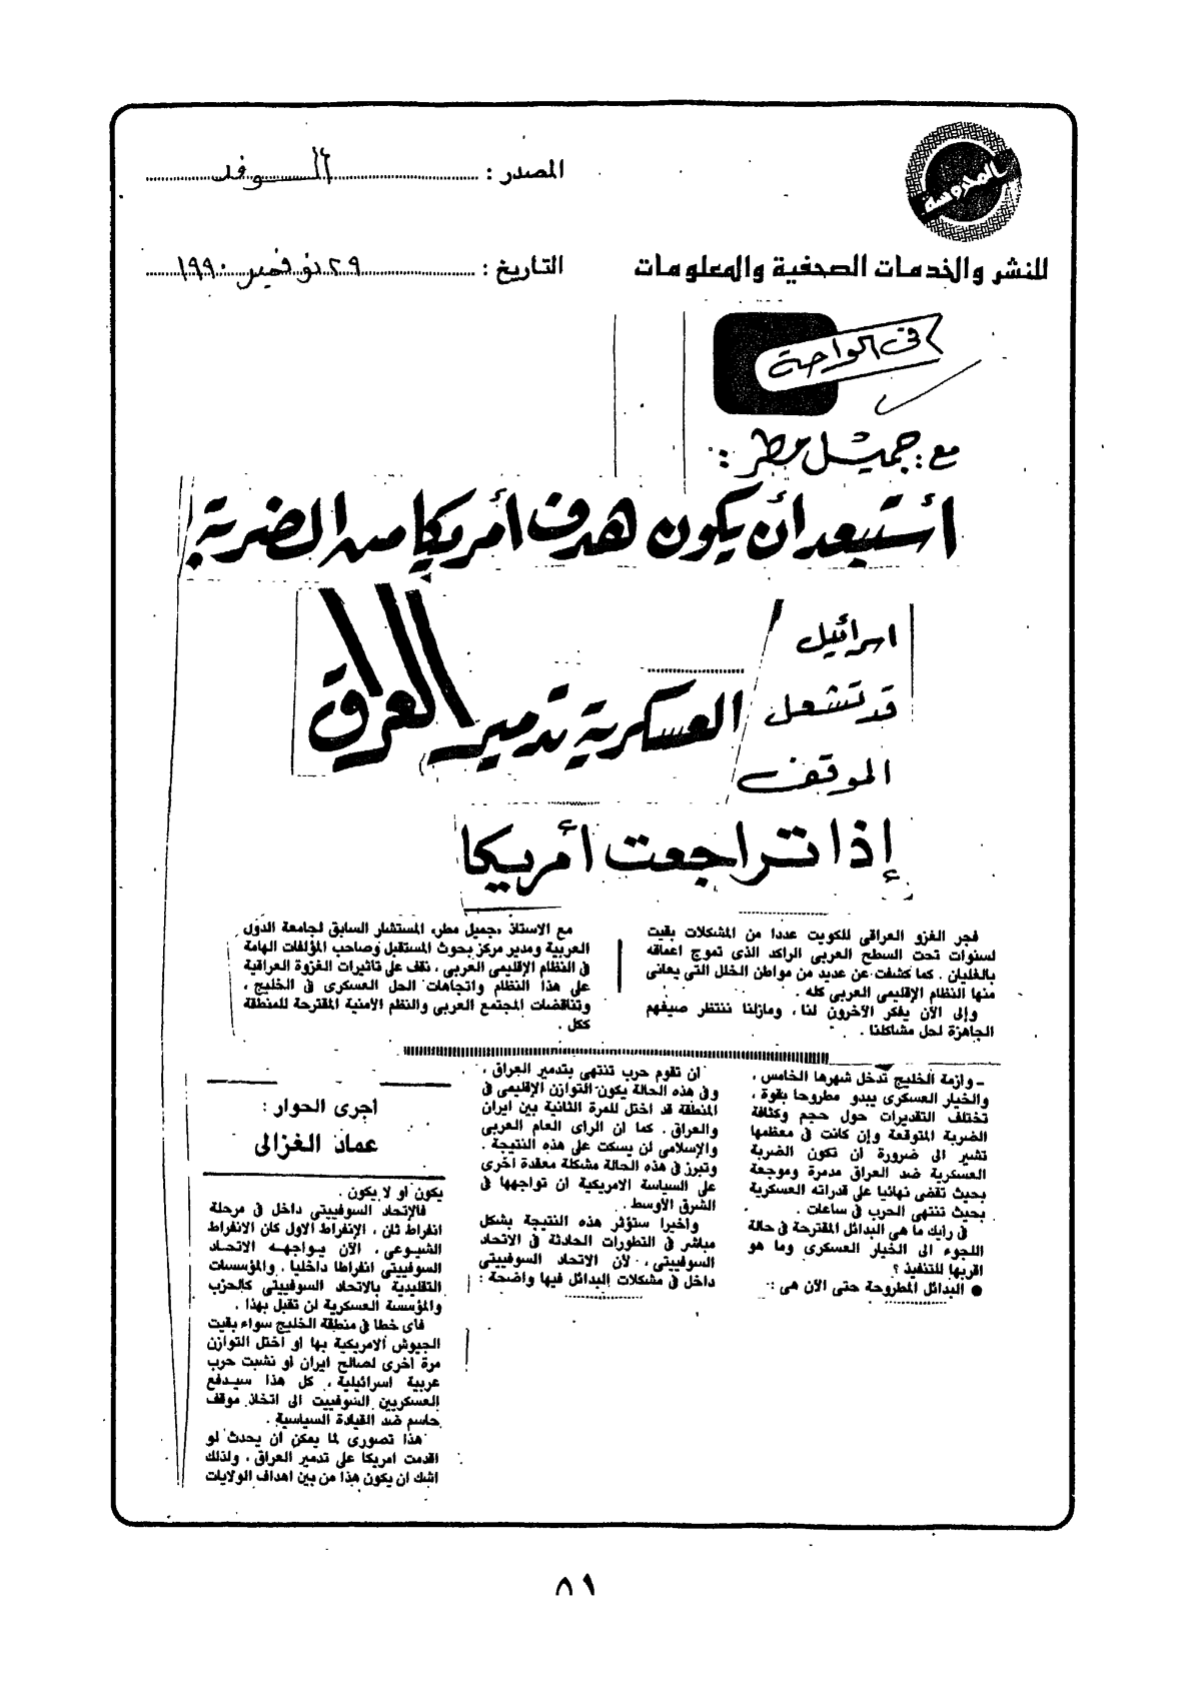 المحروسة
للنشر والخدمات الصحفية والمعلومات
المصدر : الوفد
التاريخ : ٢٩ نوفمبر ١٩٩٠
فى الواحة
مع : جميل مطر :
أستبعد أن يكون هدف أمريكا من الضربة
العسكرية تدمير العراق
اسرائيل
قد تشعل
الموقف
إذا تراجعت أمريكا
فجر الغزو العراقى للكويت عددا من المشكلات بقيت
لسنوات تحت السطح العربى الراكد الذى تموج اعماقه
بالغليان . كما كشفت عن عديد من مواطن الخلل التى يعانى
منها النظام الإقليمى العربى كله .
وإلى الآن يفكر الآخرون لنا ، ومازلنا ننتظر صيغهم
الجاهزة لحل مشاكلنا .
مع الاستاذ «جميل مطر» المستشار السابق لجامعة الدول
العربية ومدير مركز بحوث المستقبل وصاحب المؤلفات الهامة
فى النظام الإقليمى العربى ، نقف على تاثيرات الغزوة العراقية
على هذا النظام واتجاهات الحل العسكرى فى الخليج ،
وتناقضات المجتمع العربى والنظم الامنية المقترحة للمنطقة
ككل .
ـ وازمة الخليج تدخل شهرها الخامس ،
والخيار العسكرى يبدو مطروحا بقوة ،
تختلف التقديرات حول حجم وكثافة
الضربة المتوقعة وإن كانت فى معظمها
تشير الى ضرورة ان تكون الضربة
العسكرية ضد العراق مدمرة وموجعة
بحيث تقضى نهائيا على قدراته العسكرية
بحيث تنتهى الحرب فى ساعات .
فى رايك ما هى البدائل المقترحة فى حالة
اللجوء الى الخيار العسكرى وما هو
اقربها للتنفيذ ؟
● البدائل المطروحة حتى الآن هى :
ان تقوم حرب تنتهى بتدمير العراق ،
وفى هذه الحالة يكون التوازن الإقليمى فى
المنطقة قد اختل للمرة الثانية بين ايران
والعراق . كما ان الراى العام العربى
والإسلامى لن يسكت على هذه النتيجة .
وتبرز فى هذه الحالة مشكلة معقدة اخرى
على السياسة الامريكية ان تواجهها فى
الشرق الأوسط .
واخيرا ستؤثر هذه النتيجة بشكل
مباشر فى التطورات الحادثة فى الاتحاد
السوفييتى ، لأن الاتحاد السوفييتى
داخل فى مشكلات البدائل فيها واضحة :
اجرى الحوار :
عماد الغزالى
يكون او لا يكون .
فالإتحاد السوفييتى داخل فى مرحلة
انفراط ثان ، الإنفراط الاول كان الانفراط
الشيوعى ، الآن يواجهه الاتحاد
السوفييتى انفراطا داخليا ، والمؤسسات
التقليدية بالاتحاد السوفييتى كالحزب
والمؤسسة العسكرية لن تقبل بهذا .
فاى خطا فى منطقة الخليج سواء بقيت
الجيوش الامريكية بها او اختل التوازن
مرة اخرى لصالح ايران او نشبت حرب
عربية اسرائيلية ، كل هذا سيدفع
العسكريين السوفييت الى اتخاذ موقف
حاسم ضد القيادة السياسية .
هذا تصورى لما يمكن ان يحدث لو
اقدمت امريكا على تدمير العراق ، ولذلك
اشك ان يكون هذا من بين اهداف الولايات
٨١